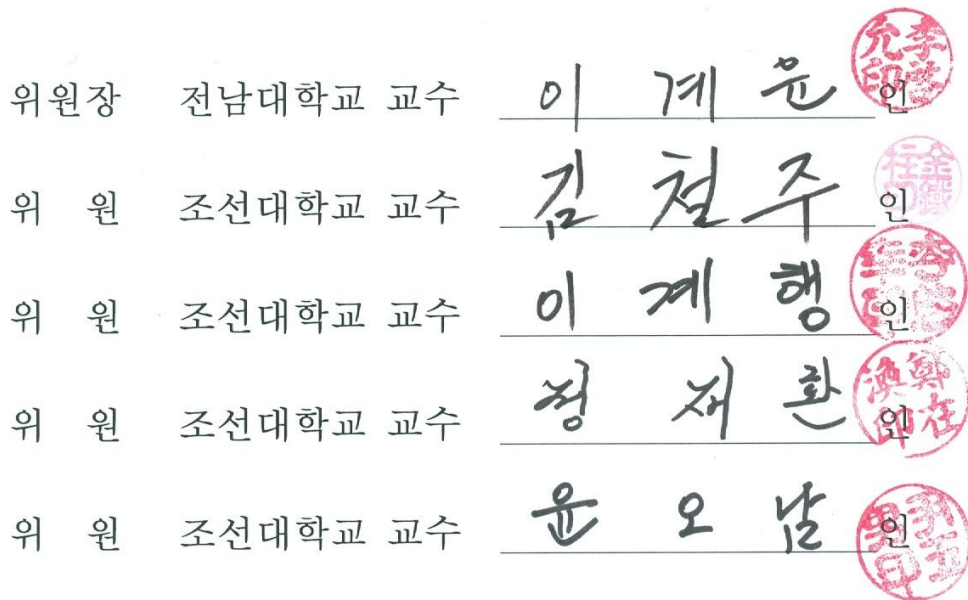 위원장 전남대학교 교수 이계윤 인
위 원 조선대학교 교수 김철주 인
위 원 조선대학교 교수 이계행 인
위 원 조선대학교 교수 정재환 인
위 원 조선대학교 교수 윤오남 인